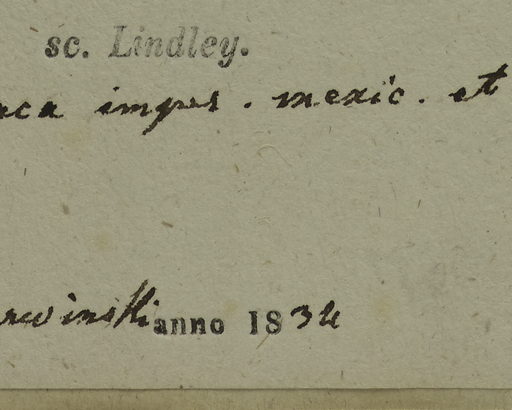 sc. Lindley.
aca imper. mexic. et
arwinski anno 1832